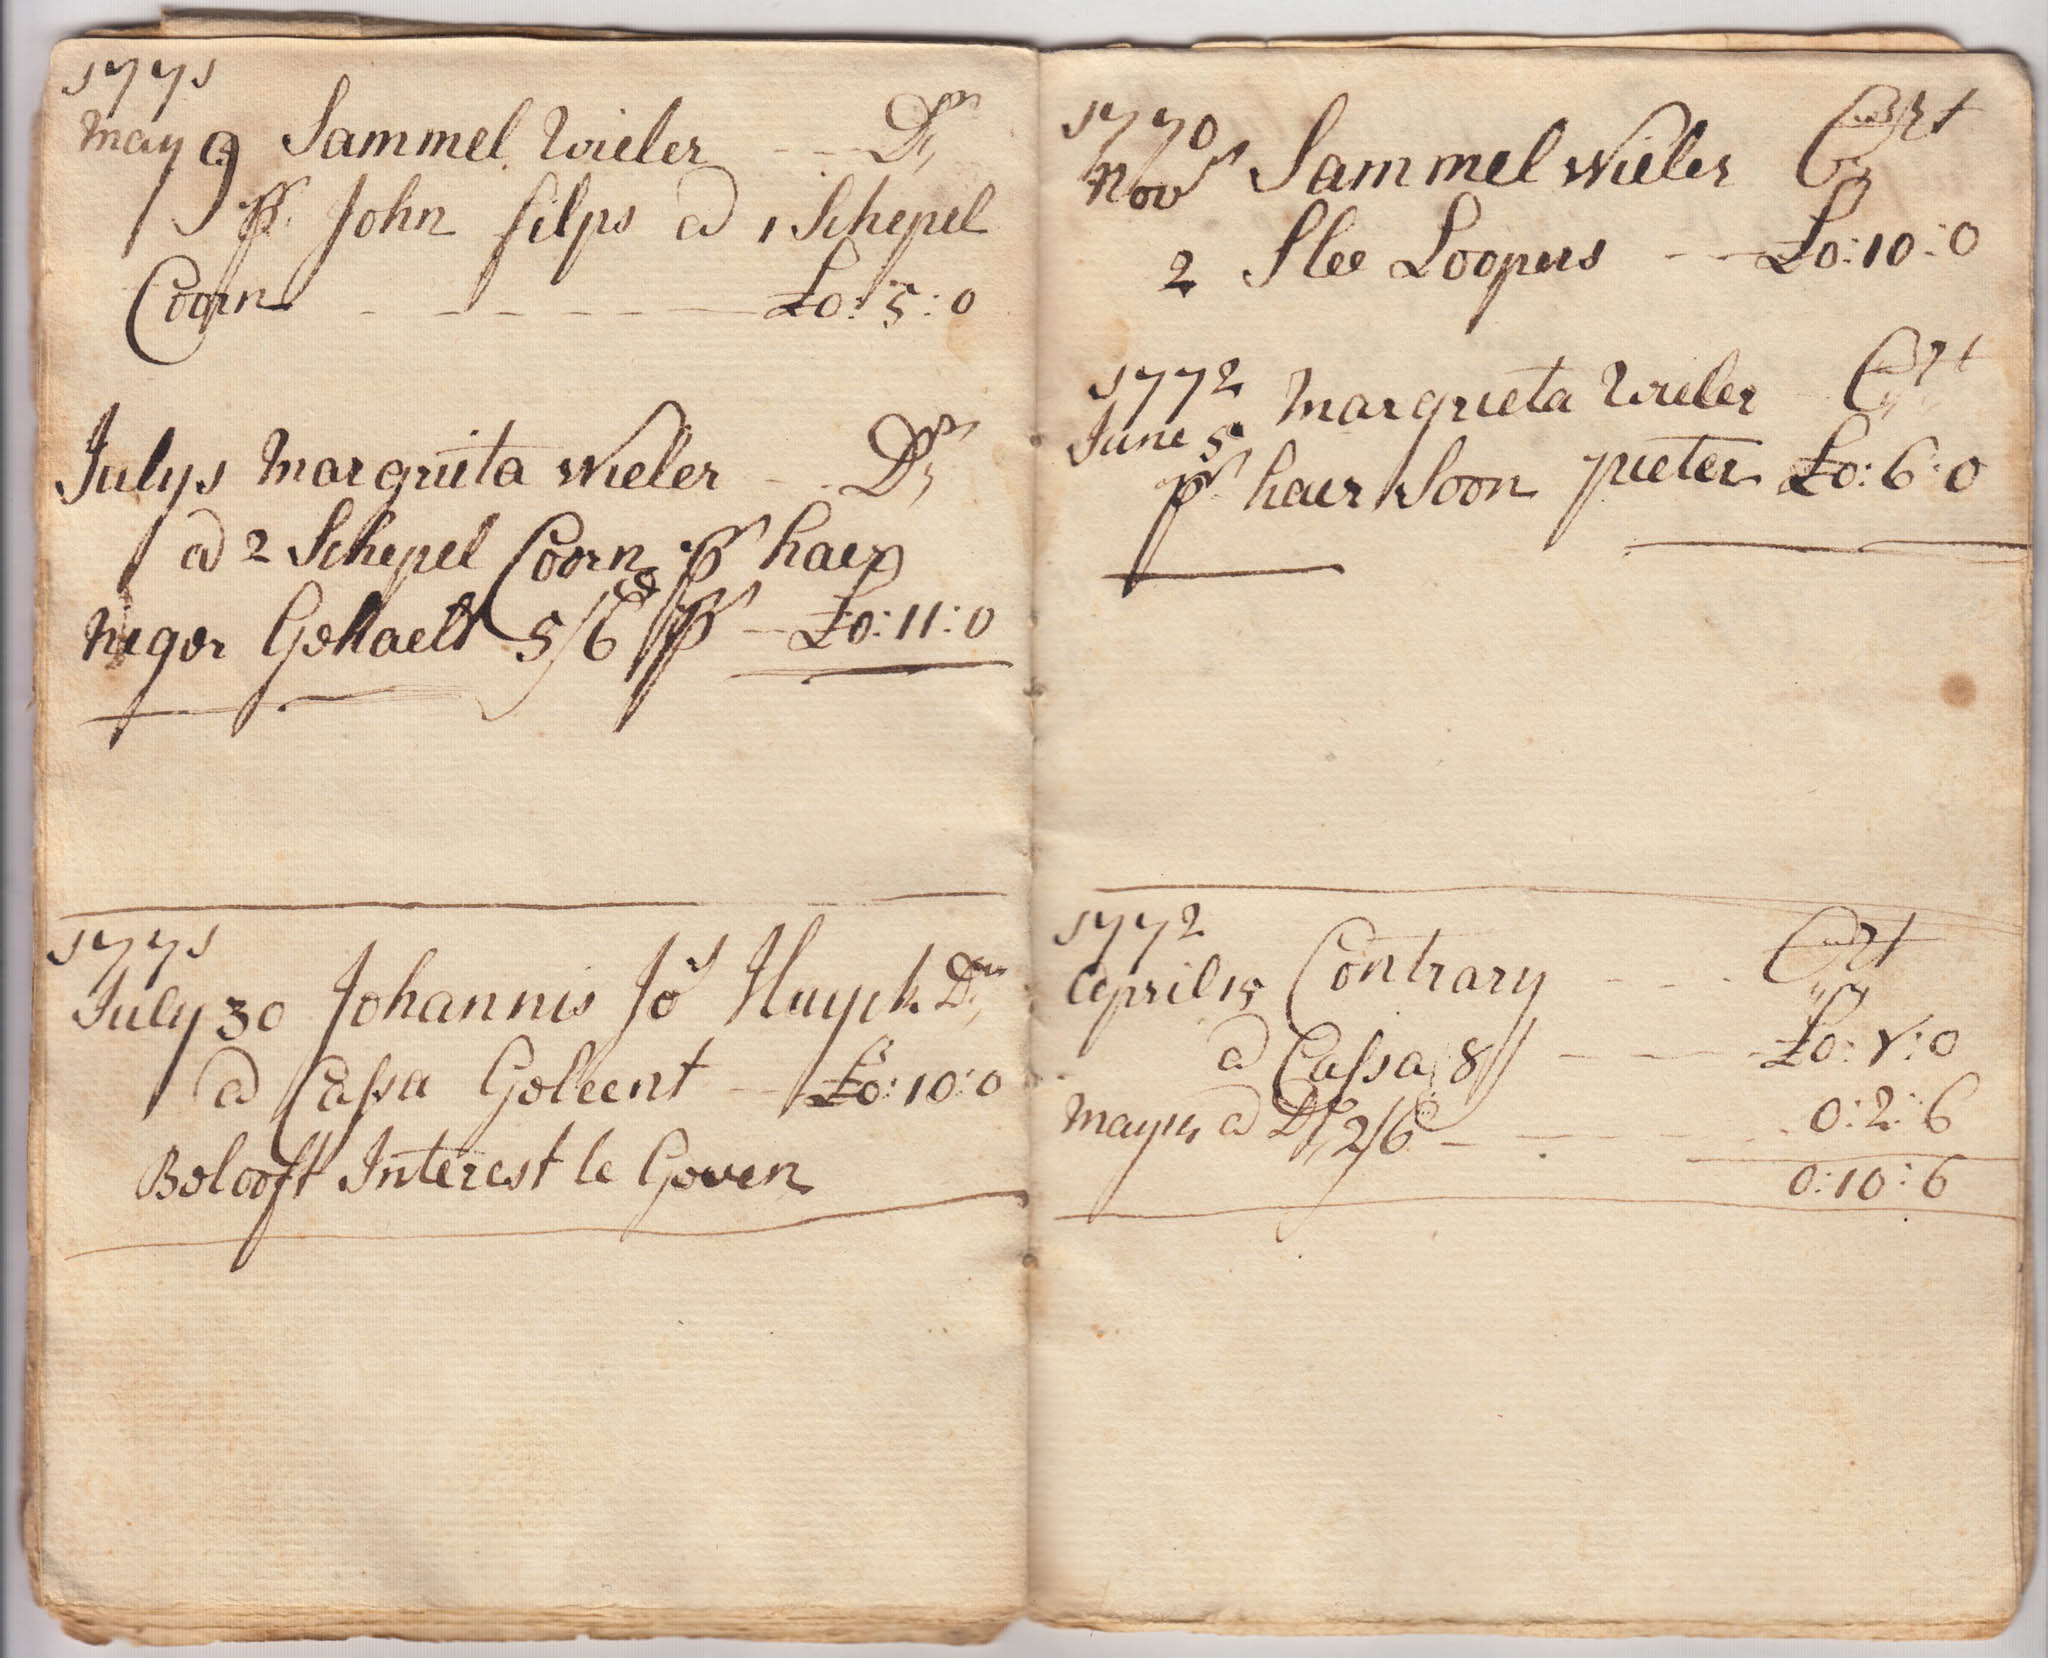 1771
May 9 Sammel Wieler -- Dr
pr John filps @ 1 Schepel
Coorn - - - - - - £0:5:0
July 1 Margrieta Wieler -- Dr
@ 2 Schepel Coorn pr haer
neger Gehaelt 5/6d pr - £0:11:0
1771
July 30 Johannis Jos Huyck Dr
@ Cassa Geleent - £0:10:0
Belooft Interest te Geven
1770
Nov Sammel Wieler Crt
2 Slee Loopers -- £0:10:0
1772
June 5 Margrieta Wieler - Crt
pr haer Soon pieter £0:6:0
1772
April 15 Contrary - - - Crt
@ Cassa 8/ - - - £0:8:0
May 14 @ Do 2/6 - - - - 0:2:6
0:10:6